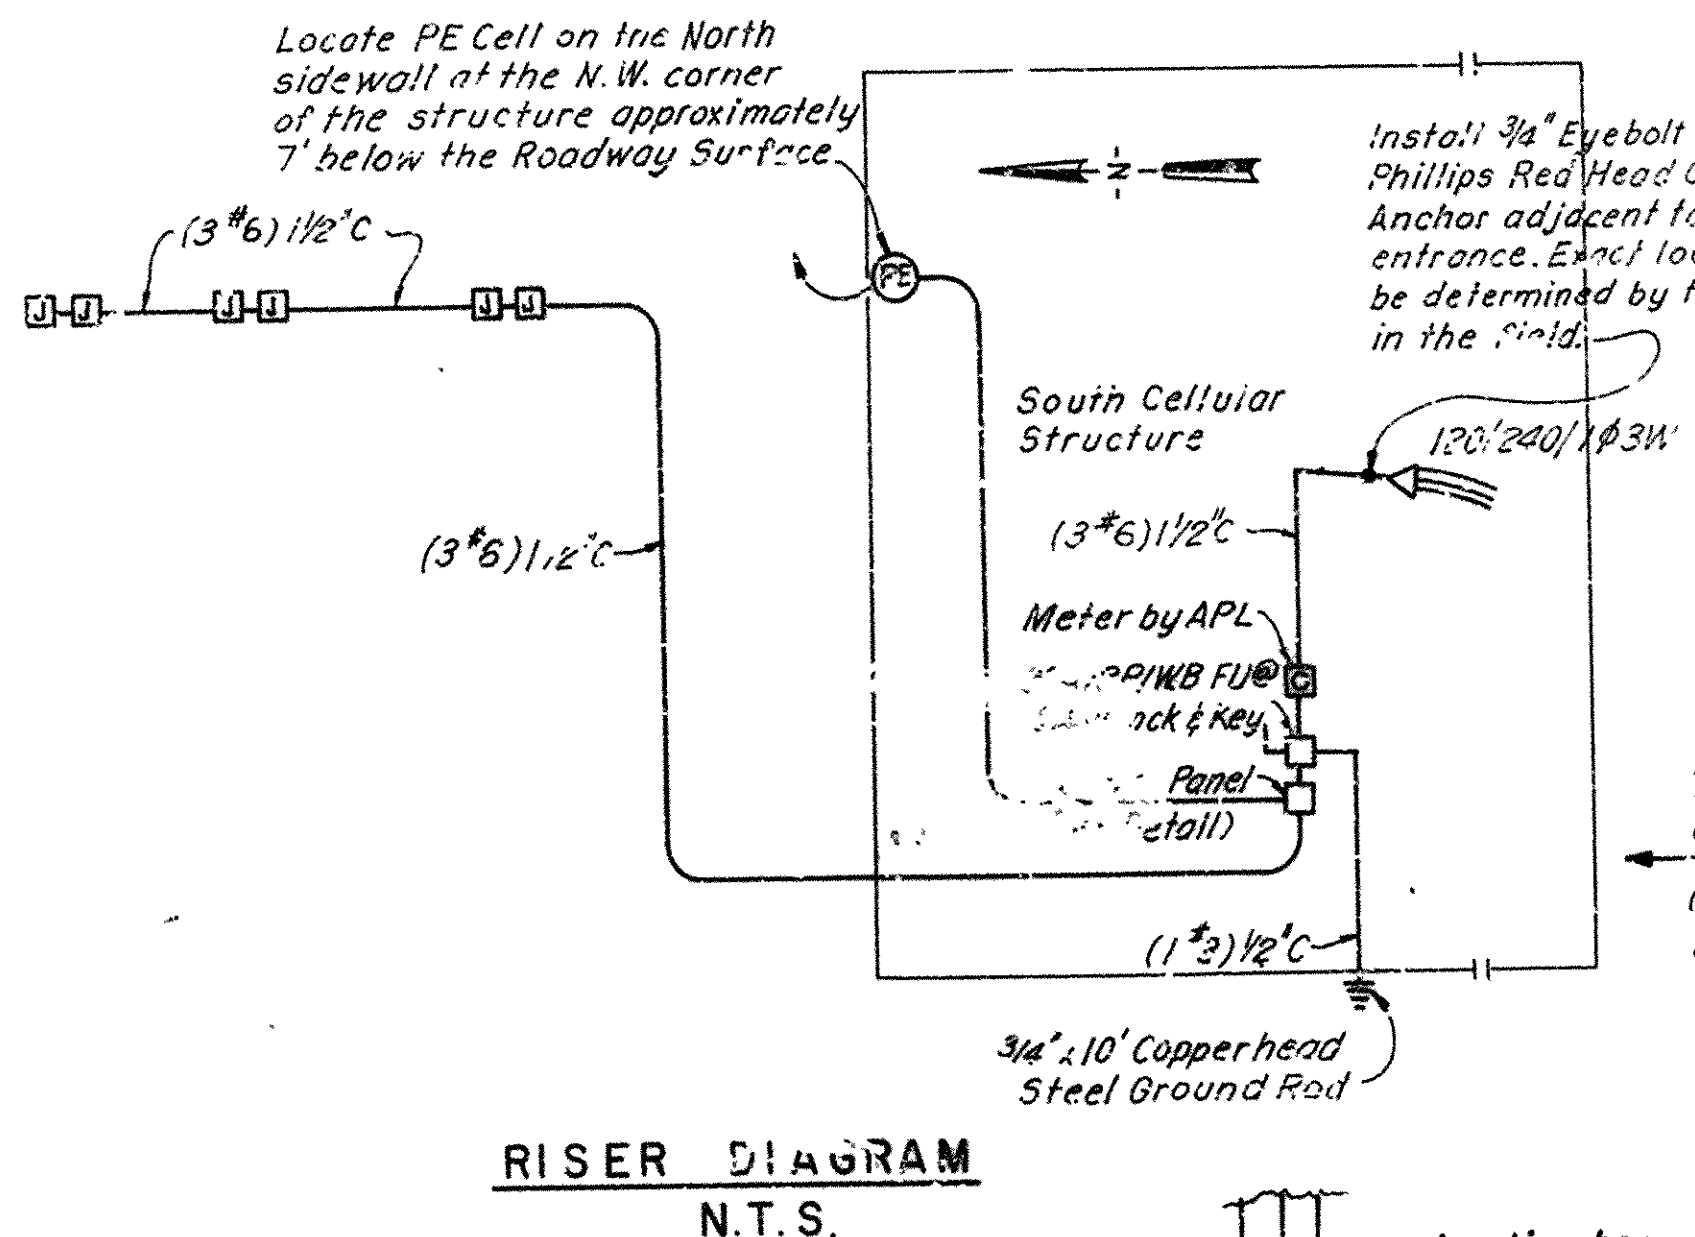 Locate PE Cell on the North
sidewall at the N.W. corner
of the structure approximately
7' below the Roadway Surface
(3 #6) 1 1/2" C
J J J J J J
PE
N
Install 3/4" Eyebolt
Phillips Red Head
Anchor adjacent
entrance. Exact
be determined by
in the Field.
South Cellular
Structure
120/240/1φ3W
(3 #6) 1 1/2" C
(3 #6) 1 1/2" C
Meter by APL
FU@
& Key
G
Panel
(1 #8) 1/2" C
3/4" x 10' Copperhead
Steel Ground Rod
RISER DIAGRAM
N.T.S.